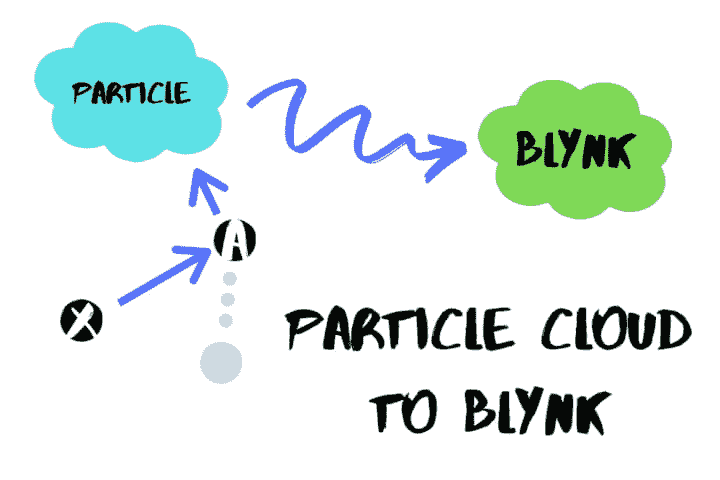 PARTICLE
BLYNK
A
X
PARTICLE CLOUD
TO BLYNK